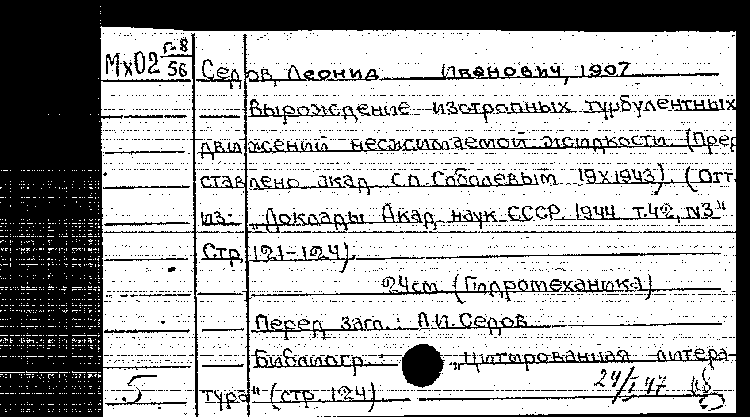 Мх02 Г-8/56
Седов, Леонид Иванович, 1907
Вырождение изотропных турбулентных
движений несжимаемой жидкости. (Пред
ставлено акад. С.Л. Соболевым 19 X 1943). (Отт.
из: "Доклады Акад. наук СССР. 1944 т.42, N3"
Стр. 121-124).
24см. (Гидромеханика)
Перед загл.: Л.И. Седов
Библиогр.: "Цитированная литера-
5 тура" (стр. 124)
24/I 47